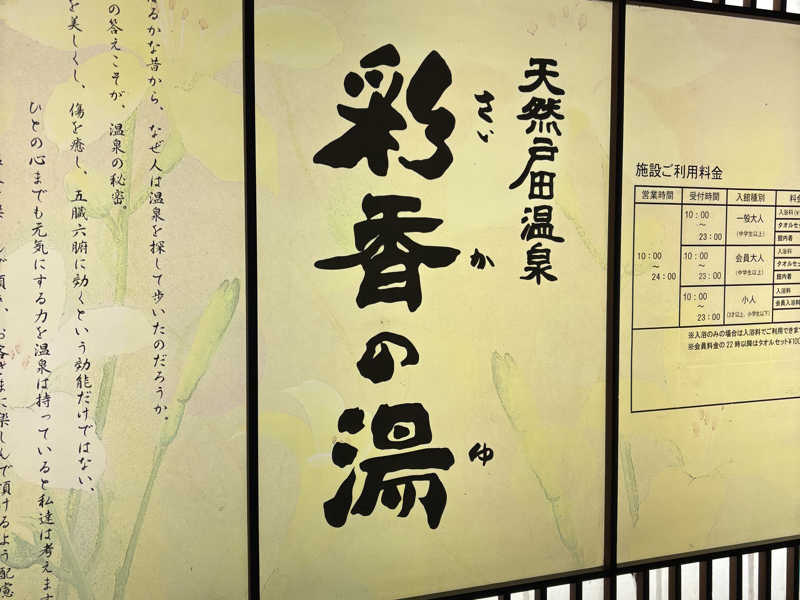 天然戸田温泉
彩香の湯
さい
か
ゆ
るかな昔から、なぜ人は温泉を探して歩いたのだろうか。
の答えこそが、温泉の秘密。
を美しくし、傷を癒し、五臓六腑に効くという効能だけではない、
ひとの心までも元気にする力を温泉は持っていると私達は考えます
施設ご利用料金
営業時間 受付時間 入館種別
10:00～24:00
10:00～23:00 一般大人(中学生以上)
入浴料
タオルセ
館内着
10:00～23:00 会員大人(中学生以上)
入浴料
タオルセ
館内着
10:00～23:00 小人
入浴料
会員入浴料
※入浴のみの場合は入浴料でご利用できま
※会員料金の22時以降はタオルセット¥100